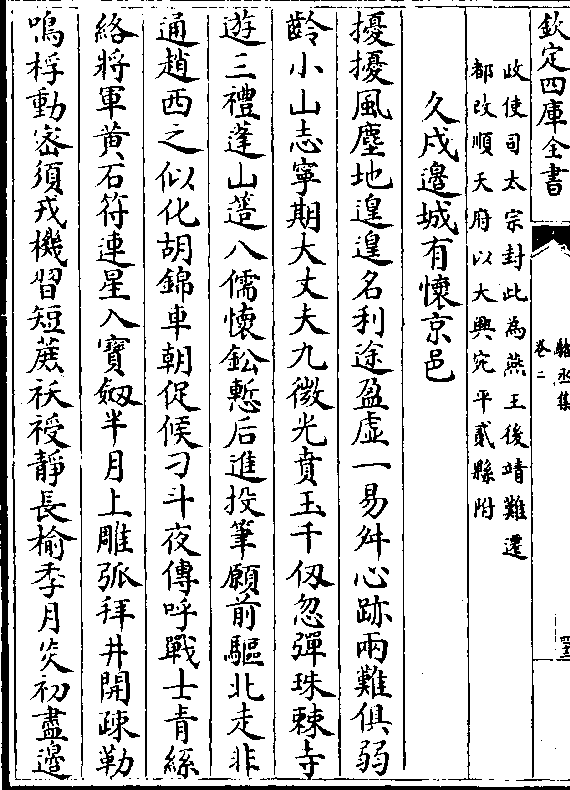 欽定四庫全書
駱丞集
卷二
政使司太宗封此為燕王後靖難遷
都改順天府以大興宛平貳縣附
久戍邊城有懷京邑
擾擾風塵地遑遑名利途盈虛一易舛心跡兩難俱弱
齡小山志寧期大丈夫九微光賁玉千仭忽彈珠棘寺
遊三禮蓬山簉八儒懷鉛慙后進投筆願前驅北走非
通趙西之似化胡錦車朝促候刁斗夜傳呼戰士青絲
絡將軍黃石符連星入寶劔半月上雕弧拜井開疎勒
鳴桴動宻須戎機習短蔗祅祲靜長榆季月炎初盡邊